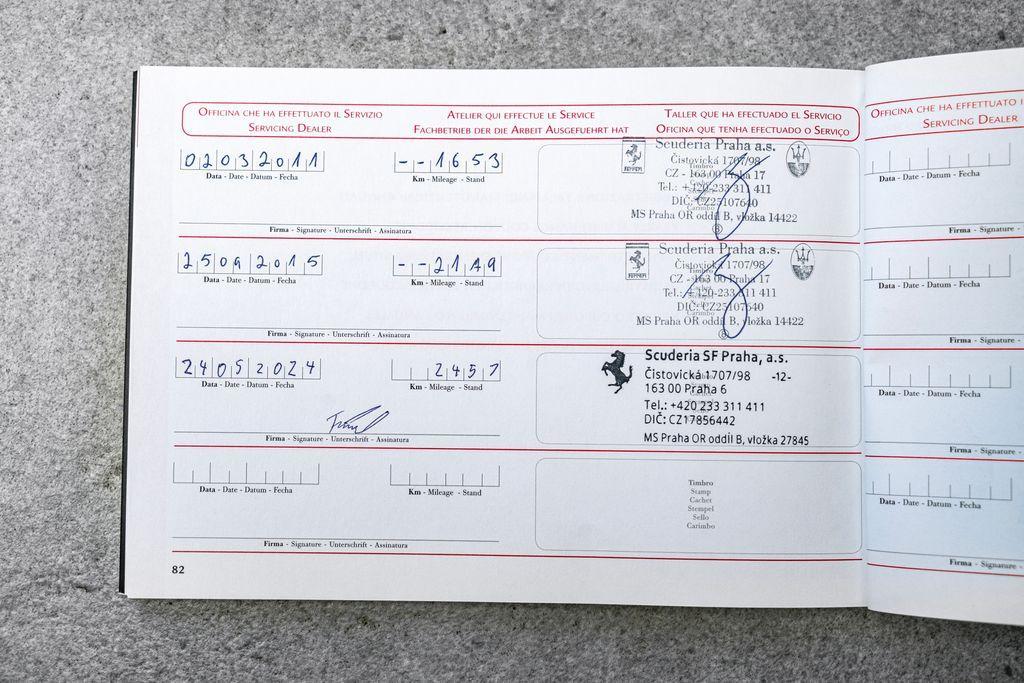 OFFICINA CHE HA EFFETTUATO IL SERVIZIO
SERVICING DEALER
ATELIER QUI EFFECTUE LE SERVICE
FACHBETRIEB DER DIE ARBEIT AUSGEFUEHRT HAT
TALLER QUE HA EFECTUADO EL SERVICIO
OFICINA QUE TENHA EFECTUADO O SERVIÇO
02032011
Data - Date - Datum - Fecha
--1653
Km - Mileage - Stand
Firma - Signature - Unterschrift - Assinatura
FERRARI
Scuderia Praha a.s.
Čistovická 1707/98
CZ - 163 00 Praha 17
Tel.: +420-233 311 411
DIČ: CZ25107640
MS Praha OR oddíl B, vložka 14422
25092015
Data - Date - Datum - Fecha
--2149
Km - Mileage - Stand
Firma - Signature - Unterschrift - Assinatura
FERRARI
Scuderia Praha a.s.
Čistovická 1707/98
CZ - 163 00 Praha 17
Tel.: +420-233 311 411
DIČ: CZ25107640
MS Praha OR oddíl B, vložka 14422
24052024
Data - Date - Datum - Fecha
2457
Km - Mileage - Stand
Firma - Signature - Unterschrift - Assinatura
Scuderia SF Praha, a.s.
Čistovická 1707/98 -12-
163 00 Praha 6
Tel.: +420 233 311 411
DIČ: CZ17856442
MS Praha OR oddíl B, vložka 27845
Data - Date - Datum - Fecha
Km - Mileage - Stand
Firma - Signature - Unterschrift - Assinatura
Timbro
Stamp
Cachet
Stempel
Sello
Carimbo
82
OFFICINA CHE HA EFFETTUATO I
SERVICING DEALER
Data - Date - Datum - Fecha
Firma - Signature -
Data - Date - Datum - Fecha
Firma - Signature -
Data - Date - Datum - Fecha
Firma - Signature -
Data - Date - Datum - Fecha
Firma - Signature -